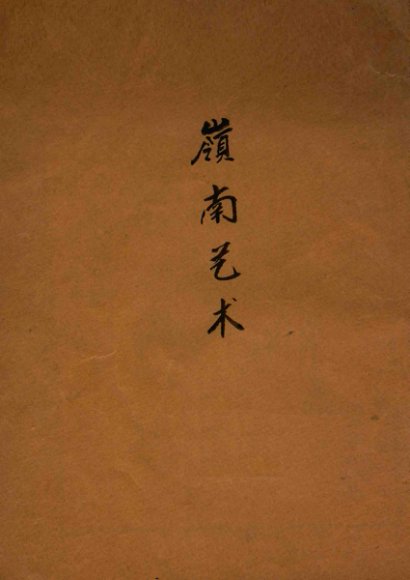 嶺南艺术